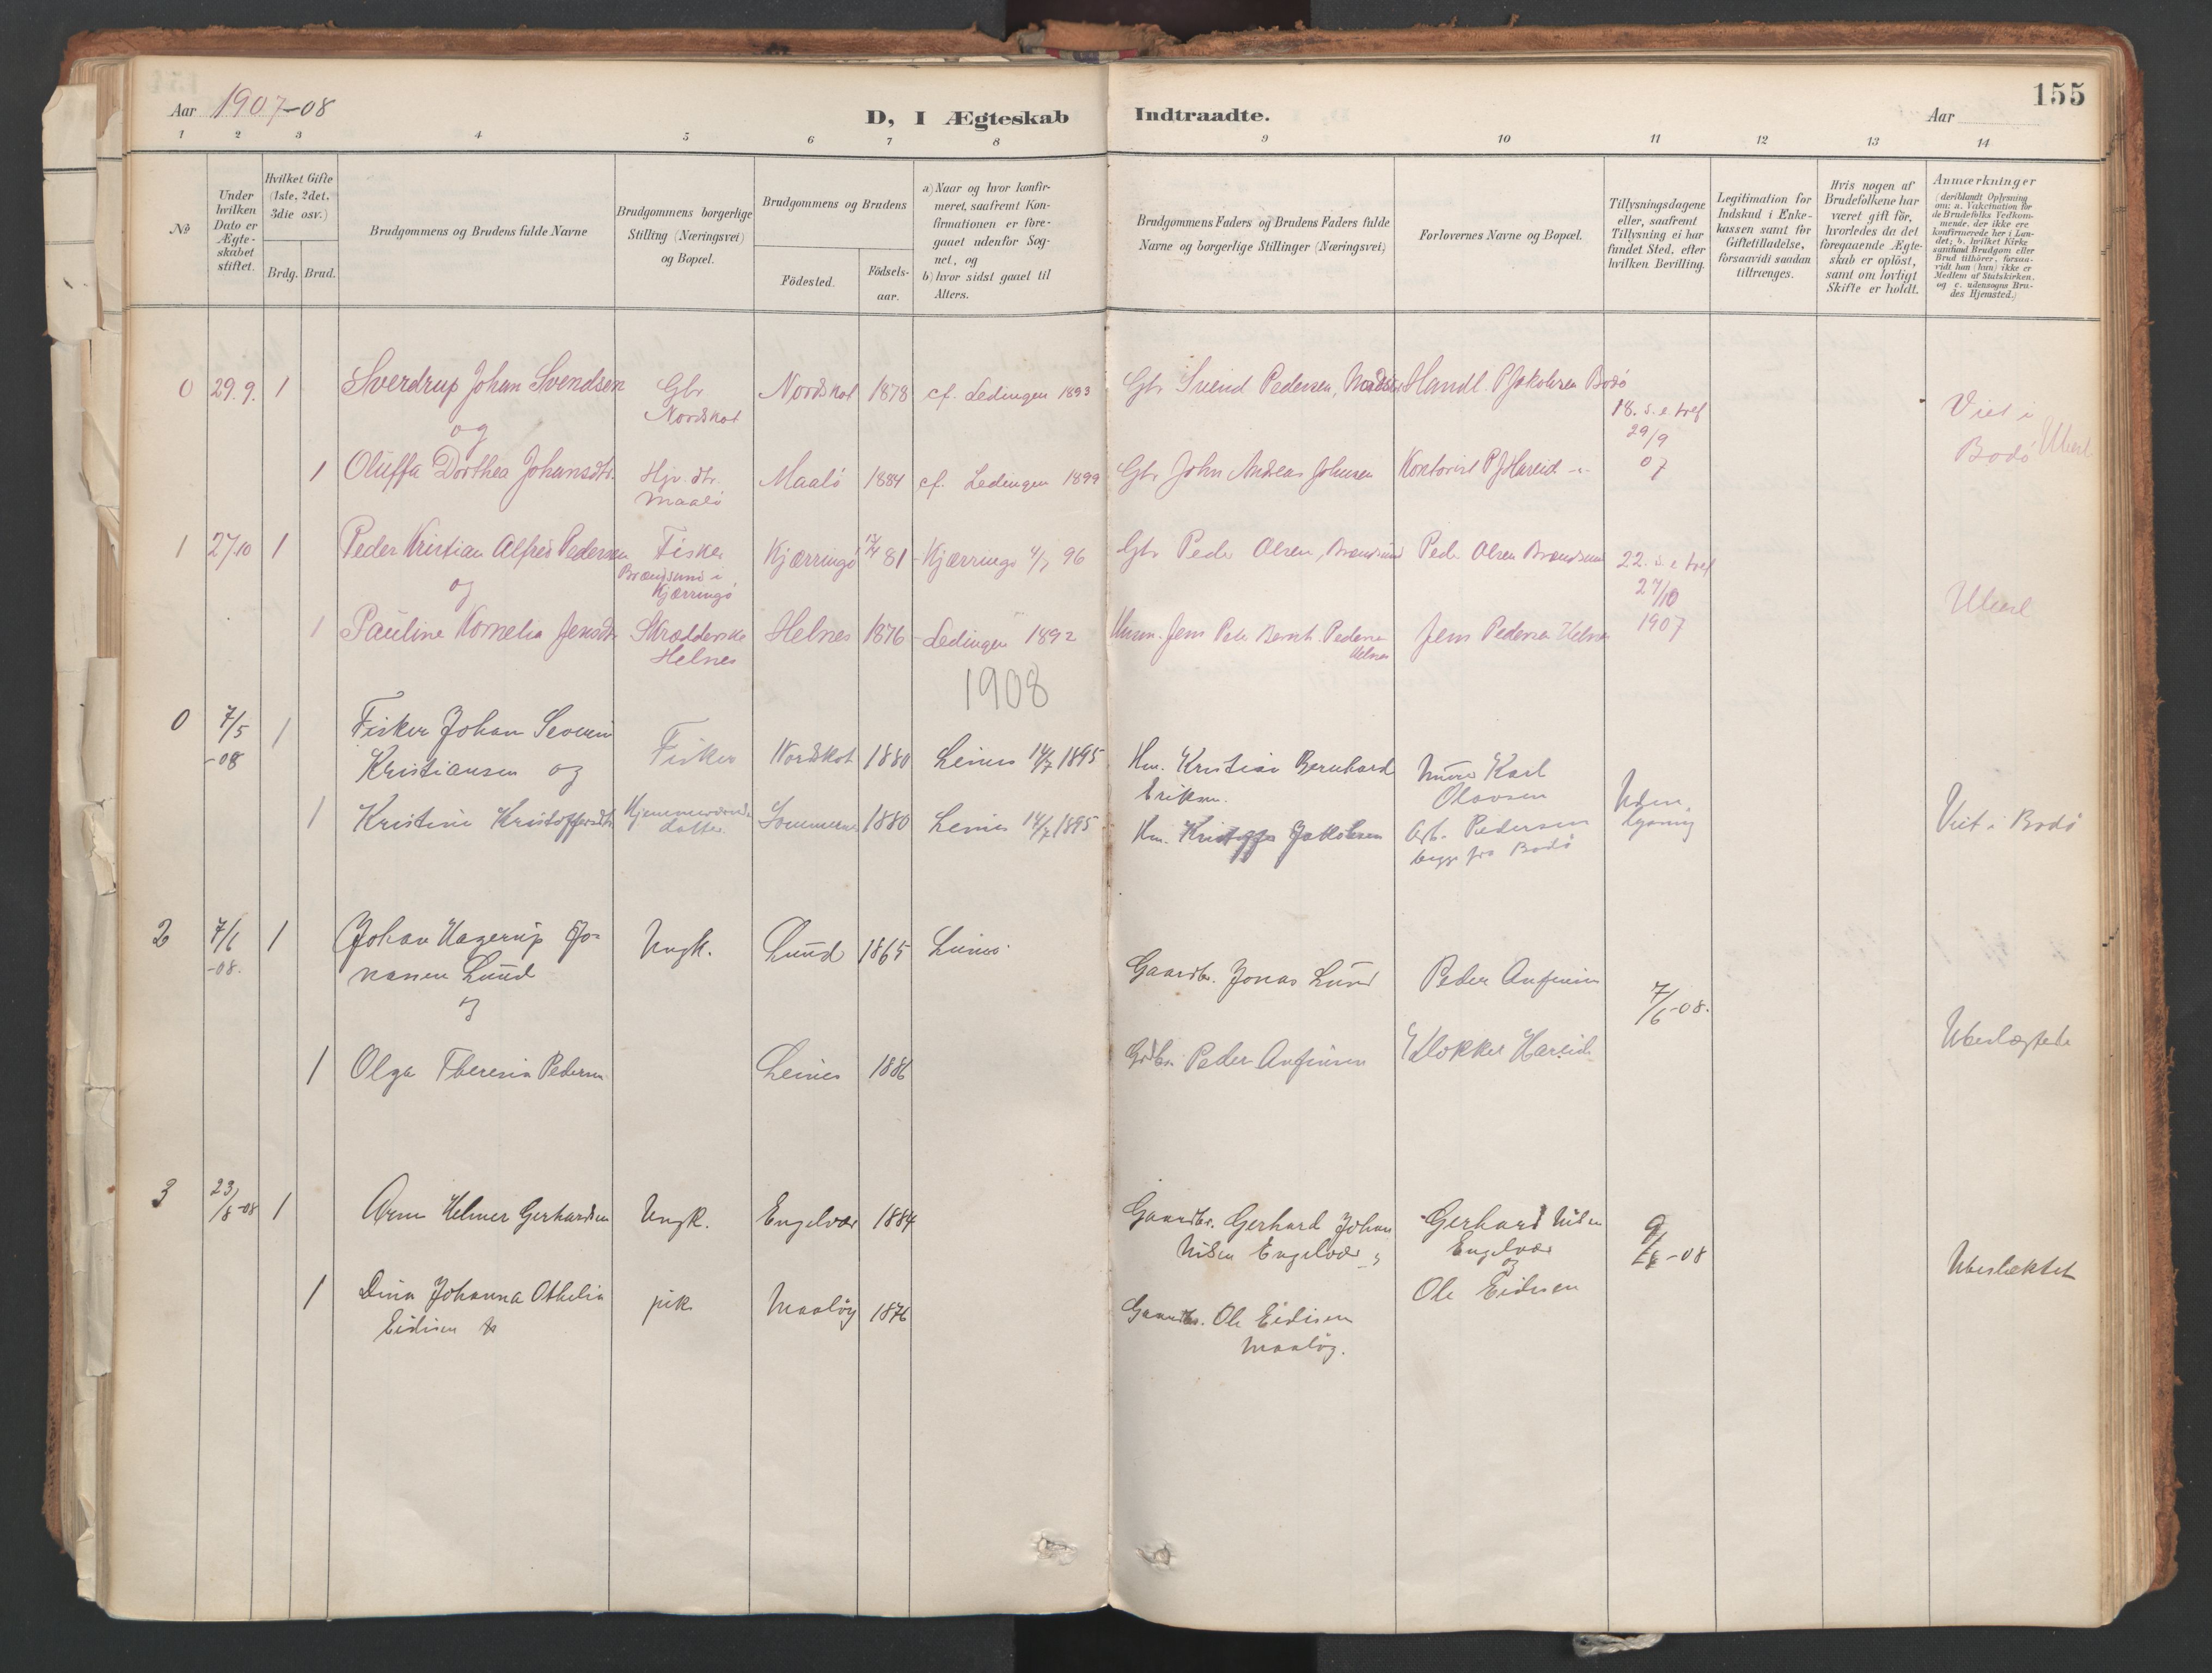 155
Aar 1907-08
D, I Ægteskab
Indtraadte.
Aar
1 2 3 4 5 6 7 8 9 10 11 12 13 14
№
Under
hvilken
Dato er
Ægte-
skabet
stiftet.
Hvilket Gifte
(1ste, 2det,
3die osv.)
Brdg. Brud.
Brudgommens og Brudens fulde Navne
Brudgommens borgerlige
Stilling (Næringsvei)
og Bopæl.
Brudgommens og Brudens
Födested.
Födsels-
aar.
a) Naar og hvor konfir-
meret, saafremt Kon-
firmationen er fore-
gaaet udenfor Sog-
net, og
b) hvor sidst gaaet til
Alters.
Brudgommens Faders og Brudens Faders fulde
Navne og borgerlige Stillinger (Næringsvei)
Forlovernes Navne og Bopæl.
Tillysningsdagene
eller, saafremt
Tillysning ei har
fundet Sted, efter
hvilken Bevilling.
Legitimation for
Indskud i Enke-
kassen samt for
Giftetilladelse,
forsaavidt saadan
tiltrænges.
Hvis nogen af
Brudefolkene har
været gift för,
hvorledes da det
foregaaende Ægte-
skab er oplöst,
samt om lovligt
Skifte er holdt.
Anmærkninger
(deriblandt Oplysning
om: a. Vakcination for
de Brudefolks Vedkom-
mende, der ikke ere
konfirmerede her i Lan-
det; b. hvilket Kirke
samfund Brudgom eller
Brud tilhörer, forsaa-
vidt han (hun) ikke er
Medlem af Statskirken,
og c. udensogns Bru-
des Hjemsted.)
0 29.9. 1 Sverdrup Johan Svendsen
og
Gbr
Nordskot
Nordskot 1878 cf. Ledingen 1893
Gbr Svend Pedersen, Handl. P Jakobsen Bodö
18. s. e. tref
29/9
07
Viet i
Bodö Ubesl
1 Oluffa Dorthea Johansdtr.
Hjv. dtr.
Maalö
Maalö 1884 cf. Ledingen 1899
Gbr John Andreas Johnsen Kontorist P J Hareid
1 27/10 1 Peder Kristian Alfred Pedersen
og
Fisker
Brændsund i
Kjærringö
Kjærringö 81 Kjærringö 96
Gbr Peder Olsen, Brændsund Peder Olsen Brændsund
22. s. e. tref
27/10
1907
Ubesl
1 Pauline Kornelia Jensdtr.
Skrædderske
Helnes
Helnes 1876 Ledingen 1892
Husm. Jens Peder Bernh. Pedersen
Helnes
Jens Pedersen Helnes
1908
0 7/5
-08
1 Fisker Johan Severin
Kristiansen og
Fisker Nordskot 1880 Leines 14/7 1895
Hm. Kristian Bernhard
Eriksen.
Murer Karl
Olavsen
Uden
lysning
Viet i Bodö
1 Kristine Kristoffersdtr
Hjemmeværende
datter
1880 Leines 14/7 1895
Hm. Kristoffer Jakobsen
Arb. Pedersen
begge fra Bodö
2 7/6
-08.
1 Johan Hagerup Jo-
nassen Lund
og
Ungk. Lund 1865 Leines
Gaardbr. Jonas Lund Peder Anfinsen
7/6-08.
Ubeslægtede
1 Olga Theresia Pedersen
Leines 1886
Gdbr. Peder Anfinsen Klokker Hareid
3 23/8-08 1 Arne Helmer Gerhardsen
Ungk. Engelvær 1884
Gaardbr. Gerhard Johan
Nilsen Engelvær
Gerhard Nilsen
Engelvær
og
Ole Eidisen
-08
Ubeslæktet
1 Dina Johanna Othelia
Eidisen
pike Maalöy 1876
Gaardbr. Ole Eidisen
Maalöy.